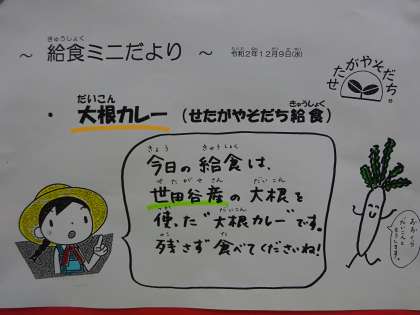 ～ 給食ミニだより ～ 令和2年12月9日(水)
きゅうしょく
せたがやそだち。
だいこん
きゅうしょく
・ 大根カレー（せたがやそだち給食）
きょう きゅうしょく
今日の給食は、
せたがやさん だいこん
世田谷産の大根を
つか だいこん
使った"大根カレー"です。
のこ た
残さず食べてくださいね!